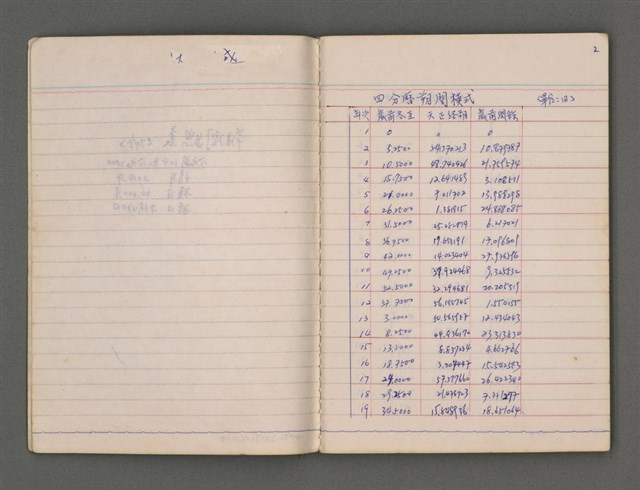 2
四分曆朔閏模式
年次 歲前冬至 天正經朔 歲前閏餘
1 0 0 0
2 5.2500 54.370213 10.879787
3 10.5000 48.740426 21.759574
4 15.7500 12.641489 3.108511
5 21.0000 7.011702 13.988298
6 26.2500 1.381915 24.868085
7 31.5000 25.282979 6.217021
8 36.7500 19.653191 17.096809
9 42.0000 14.023404 27.976596
10 47.2500 37.924468 9.325532
11 52.5000 32.294681 20.205319
12 57.7500 56.195745 1.554255
13 3.0000 50.565957 12.434043
14 8.2500 44.936170 23.313830
15 13.5000 8.837234 4.662766
16 18.7500 3.207447 15.542553
17 24.0000 57.577660 26.422340
18 29.2500 21.478723 7.771277
19 34.5000 15.848936 18.651064